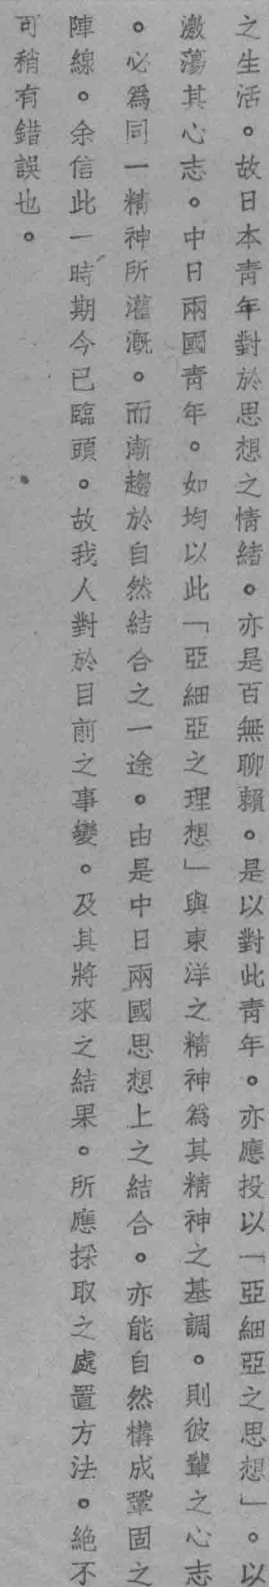 之生活。故日本青年對於思想之情緒。亦是百無聊賴。是以對此青年。亦應投以「亞細亞之思想」。以
激蕩其心志。中日兩國青年。如均以此「亞細亞之理想」與東洋之精神爲其精神之基調。則彼輩之心志
。必爲同一精神所灌漑。而漸趨於自然結合之一途。由是中日兩國思想上之結合。亦能自然構成鞏固之
陣線。余信此一時期今已臨頭。故我人對於目前之事變。及其將來之結果。所應採取之處置方法。絕不
可稍有錯誤也。